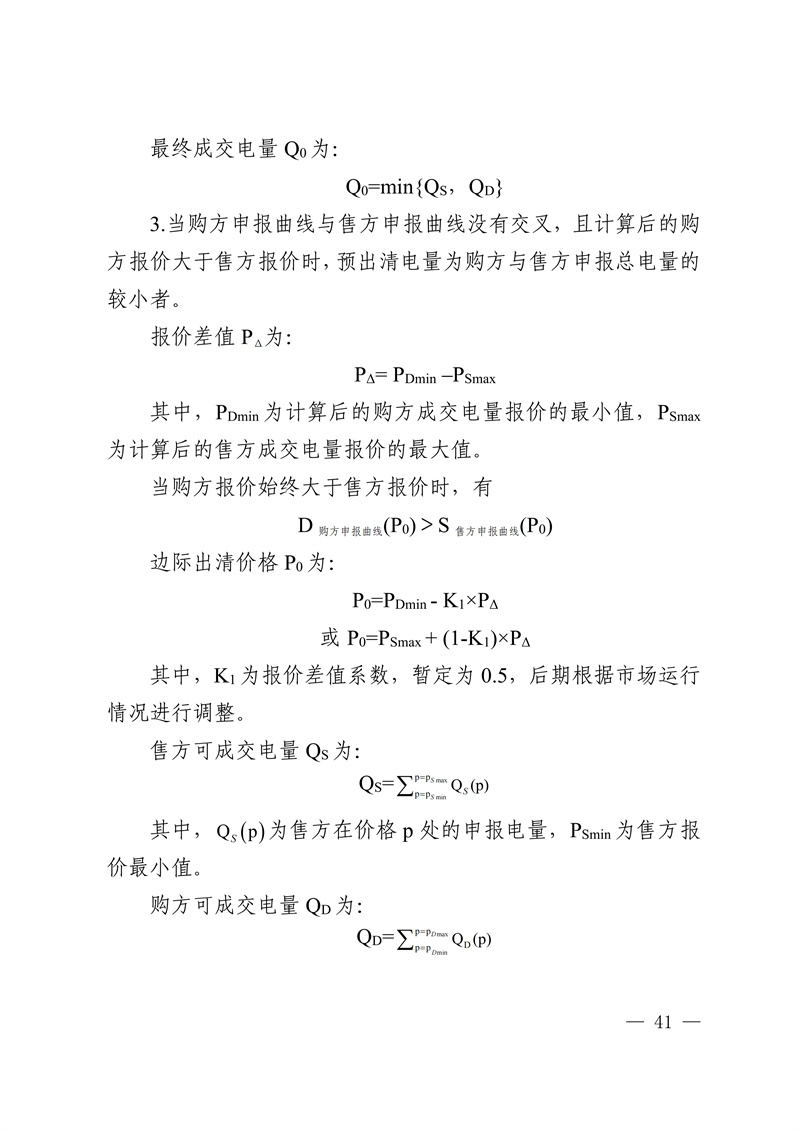 最终成交电量 Q0 为：
Q0=min{QS，QD}
3.当购方申报曲线与售方申报曲线没有交叉，且计算后的购
方报价大于售方报价时，预出清电量为购方与售方申报总电量的
较小者。
报价差值 PΔ 为：
PΔ= PDmin –PSmax
其中，PDmin 为计算后的购方成交电量报价的最小值，PSmax
为计算后的售方成交电量报价的最大值。
当购方报价始终大于售方报价时，有
D 购方申报曲线(P0) > S 售方申报曲线(P0)
边际出清价格 P0 为：
P0=PDmin - K1×PΔ
或 P0=PSmax + (1-K1)×PΔ
其中，K1 为报价差值系数，暂定为 0.5，后期根据市场运行
情况进行调整。
售方可成交电量 QS 为：
QS=∑p=pS min p=pS max QS (p)
其中，QS (p)为售方在价格 p 处的申报电量，PSmin 为售方报
价最小值。
购方可成交电量 QD 为：
QD=∑p=pDmin p=pDmax QD (p)
— 41 —